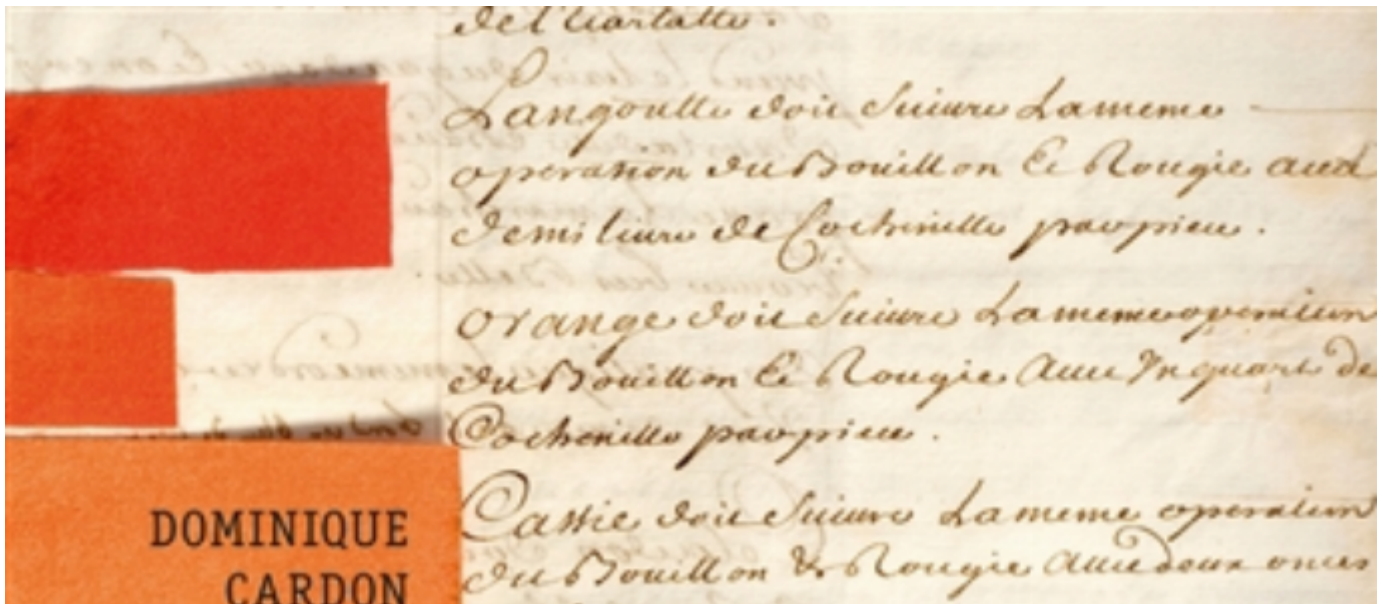 de l'Ecarlatte.
Langoutte doit Suivre La meme
operation du Bouillon Et Rougie avec
demi livre de Cochenille par piece.
Orange doit Suivre La meme operation
du Bouillon Et Rougie Avec Un quart de
Cochenille par piece.
Cassie doit Suivre La meme operation
du Bouillon & Rougie Avec deux onces
DOMINIQUE
CARDON